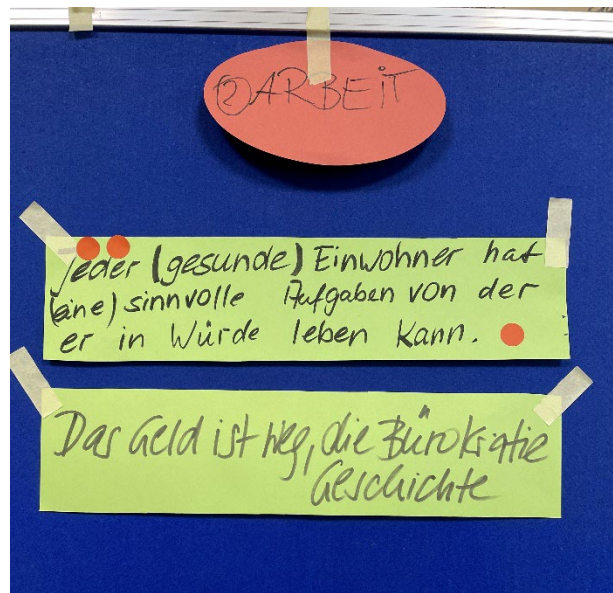 ② ARBEIT
Jeder (gesunde) Einwohner hat
(eine) sinnvolle Aufgaben von der
er in Würde leben kann.
Das Geld ist weg, die Bürokratie
Geschichte